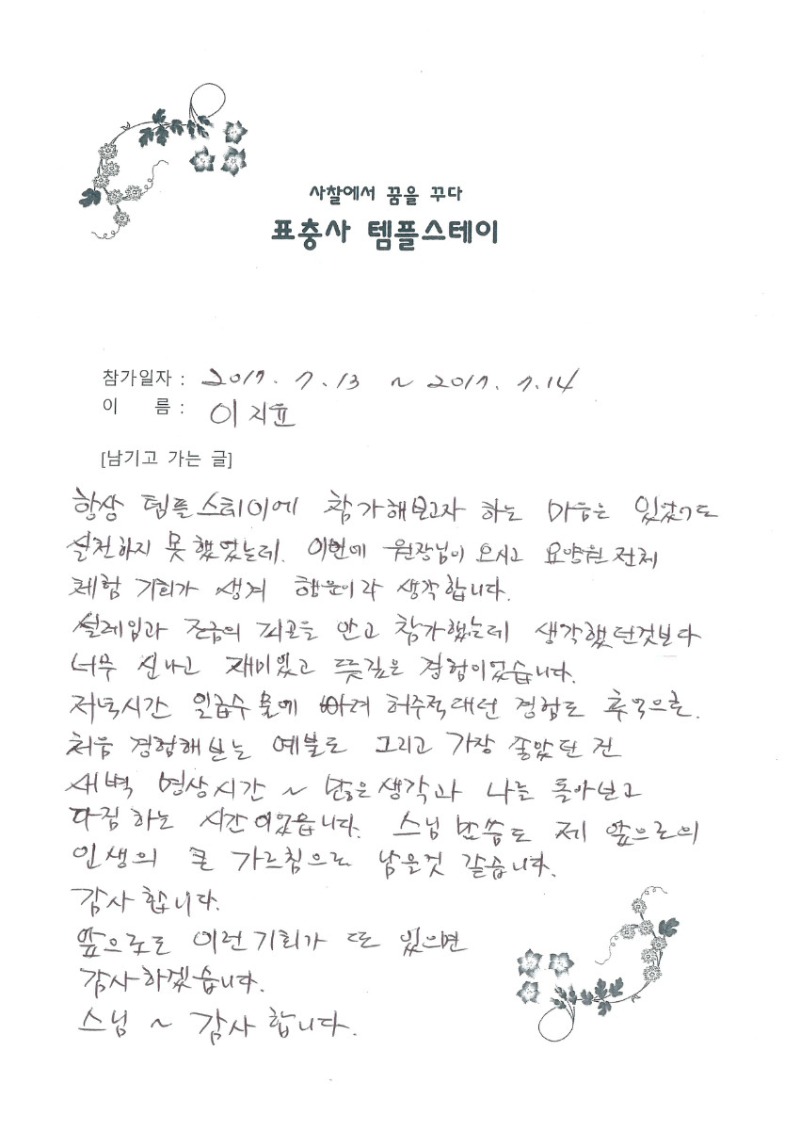 사찰에서 꿈을 꾸다
표충사 템플스테이
참가일자 : 2017. 7. 13 ~ 2017. 7. 14
이 름 : 이지윤
[남기고 가는 글]
항상 템플스테이에 참가해보고자 하는 마음은 있었어도
실천하지 못했었는데. 이번에 원장님이 오시고 요양원 전체
체험 기회가 생겨 행운이라 생각합니다.
설레임과 조금의 피곤을 안고 참가했는데 생각했던것보다
너무 신나고 재미있고 뜻깊은 경험이었습니다.
저녁시간 일급수 물에 빠져 허우적대던 경험도 추억으로.
처음 경험해보는 예불도 그리고 가장 좋았던 건
새벽 명상시간 ~ 많은생각과 나를 돌아보고
다짐하는 시간이었읍니다. 스님 말씀도 제 앞으로의
인생의 큰 가르침으로 남을것 같습니다.
감사합니다.
앞으로도 이런기회가 또 있으면
감사하겠습니다.
스님 ~ 감사합니다.